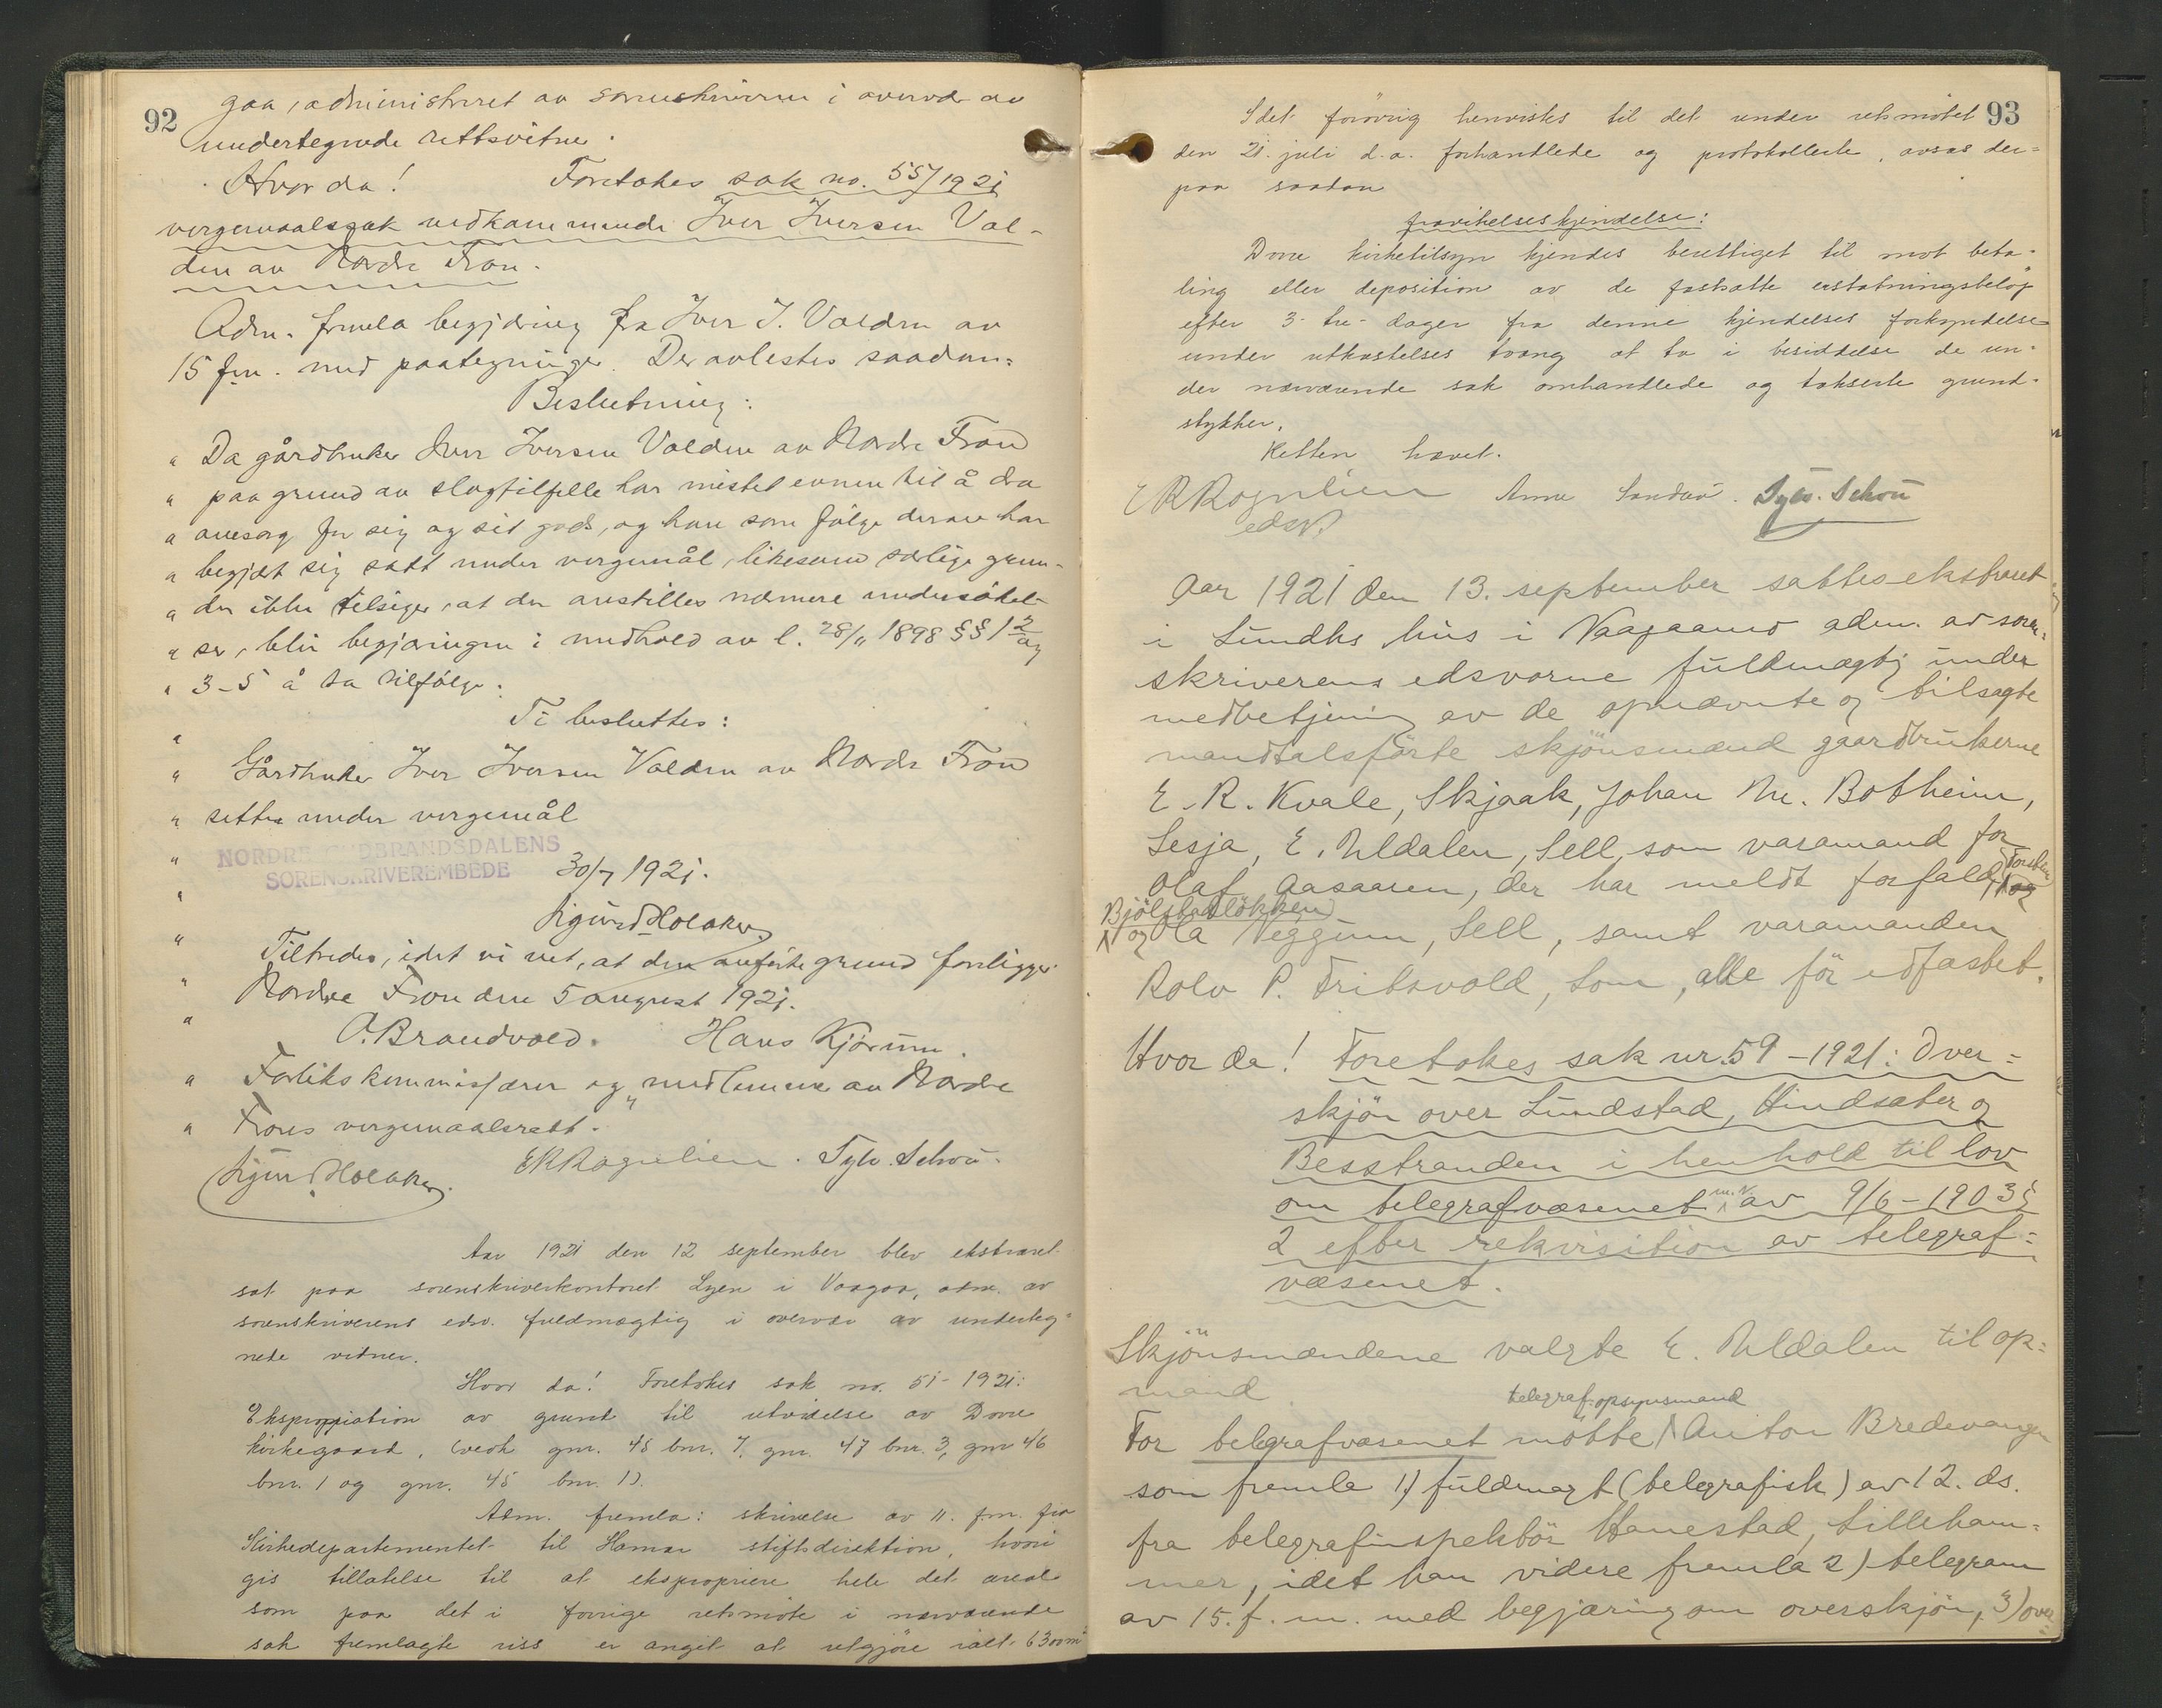 92
gaa, administreret av sorenskriveren i overvær av
undertegnede rettsvitne.
Hvor da! Foretokes sak no. 55/1921
vergemaalssak vedkommende Iver Iversen Val-
den av Nordre Fron.
Adm. fremla begjæring fra Iver I. Valden av
15 f.m. med paategninger. Der avlestes saadan:
Beslutning:
" Da gårdbruker Iver Iversen Valden av Nordre Fron
" paa grund av slagtilfelle har mistet evnen til å dra
" omsorg for sig og sit gods, og han som følge derav har
" begjært sig satt under vergemål, likesom særlige grun-
" der ikke tilsiger, at der anstilles nærmere undersøkel-
" ser, blir begjæringen i medhold av l. 28/11 1898 §§ 1 2 og
" 3-5 å ta tilfølge.
" Ti besluttes:
" Gårdbruker Iver Iversen Valden av Nordre Fron
" settes under vergemål
" NORDRE GUDBRANDSDALENS
SORENSKRIVEREMBEDE 30/7 1921.
" Sigurd Holaker
" Tiltredes, idet vi vet, at den anførte grund foreligger.
" Nordre Fron den 5 august 1921.
" O. Brandvold. Hans Kjørum.
" Forlikskommisærer og medlemmer av Nordre
" Frons vergemaalsrett.
Sigurd Holaker. E R Rognlien. Sylv. Schou.
Aar 1921 den 12 september blev ekstraret
sat paa sorenskriverkontoret Lyen i Vaagaa, adm. av
sorenskriverens edsv. fuldmægtig i overvær av underteg=
nede vidner.
Hvor da! Foretokes sak no. 51-1921:
Ekspropriation av grunt til utvidelse av Dovre
kirkegaard, (vedk gnr. 48 bnr. 7, gnr. 47 bnr. 3, gnr 46
bnr. 1 og gnr. 45 bnr. 1).
Adm. fremla: skrivelse av 11. f.m. fra
Kirkedepartementet til Hamar stiftsdirektion, hvori
gis tillatelse til at ekspropriere hele det areal
som paa det i forrige retsmöte i nærværende
sak fremlagte riss er angit at utgjöre ialt 6300m²
93
Idet forövrig henvistes til det under retsmötet
den 21. juli d.a. forhandlede og protokollerte, avsas der=
paa saadan
fravikelseskjendelse:
Dovre kirketilsyn kjendes berettiget til mot beta-
ling eller deposition av de fastsatte erstatningsbelöp
efter 3- tre- dager fra denne kjendelses forkyndelse
under utkastelses tvang at ta i besiddelse de un=
der nærværende sak omhandlede og takserte grund-
stykker.
Retten hævet.
E R Rognlien Anna Sandvi. Sylv. Schou
edsv.
Aar 1921 den 13. september sattes ekstraret
i Lundhs hus i Vaagaamo adm. av soren-
skriverens edsvorne fuldmægtig under
medbetjening av de opnævnte og tilsagte
mandtalsförte skjönsmænd gaardbrukerne
E. R. Kvale, Skjaak, Johan Nu. Botheim,
Lesja, E. Uldalen, Sell, som varamand for
Olaf Aasaaren, der har meldt forfald, Torstein
Bjölstadlökken
og Ola Veggum, Sell, samt varamanden
Rolv P. Tritsvold, som, alle för edfæstet.
Hvor da! Foretokes sak nr. 59-1921: Over=
skjön over Lundstad, Hindsæter og
Besstranden i henhold til lov
om telegrafvæsenet m.v. av 9/6-1903 §
2 efter rekvisition av telegraf=
væsenet.
Skjönsmændene valgte E. Uldalen til op=
mand
telegrafopsynsmand
For telegrafvæsenet mötte Anton Bredevangen
som fremla 1) fuldmagt (telegrafisk) av 12. ds.
fra telegrafinspektör Hanestad, Lilleham=
mer, idet han videre fremla 2) telegram
av 15. f. m. med begjæring om overskjön, 3) over=